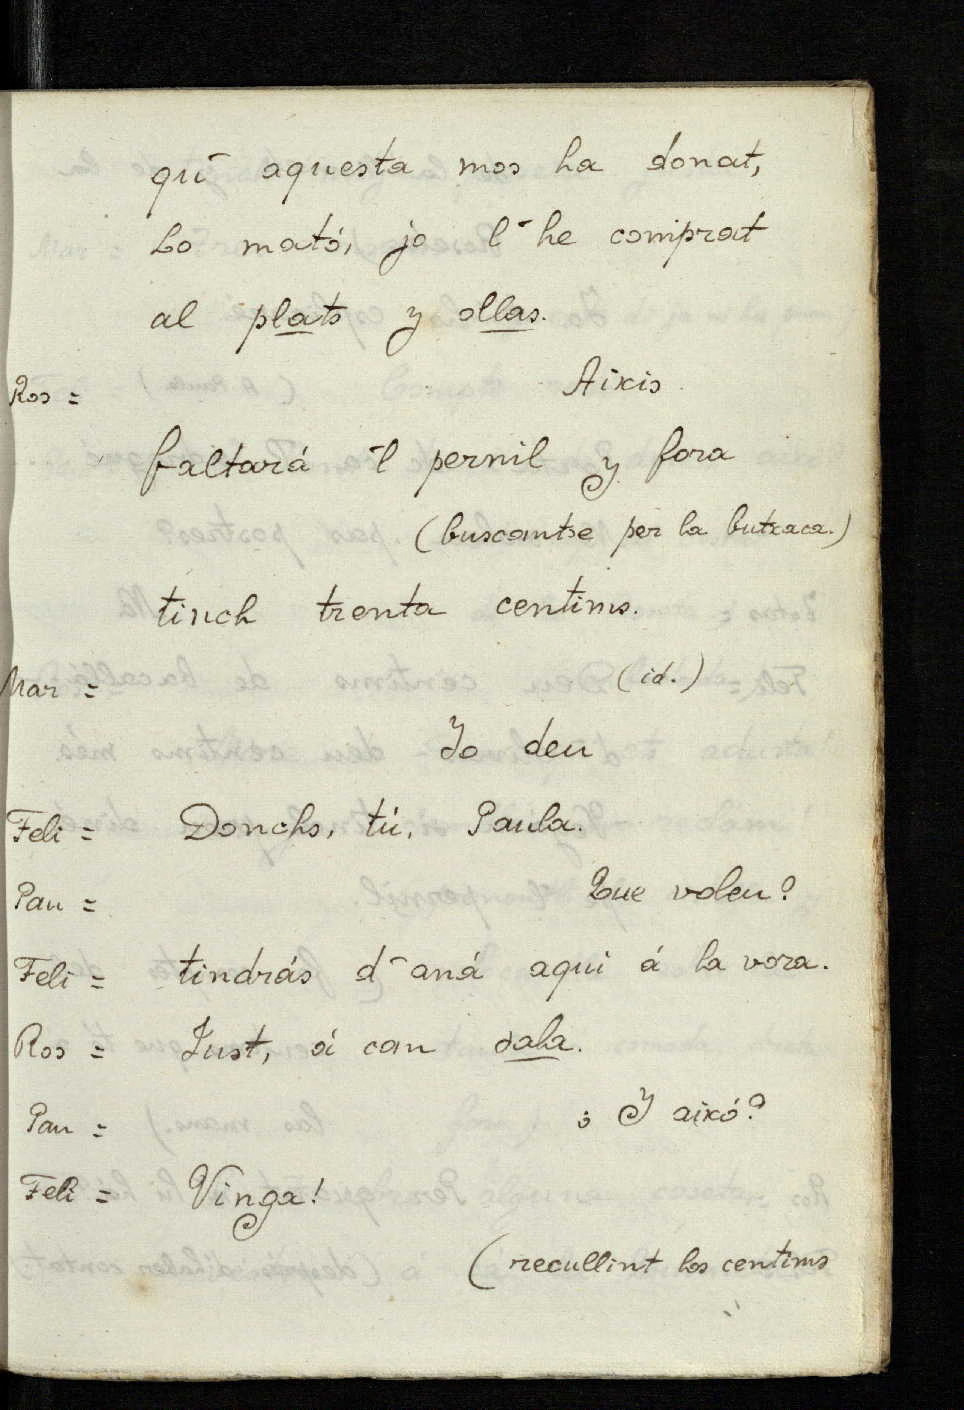 qui aquesta mos ha donat,
Lo mató, jo l-he comprat
al plats y ollas.
Ros = Aixis
faltará -l pernil y fora
(buscantse per la butxaca.)
tinch trenta centims.
Mar = (id.)
Jo deu
Feli = Donchs, tú, Paula.
Pau = Que voleu?
Feli = tindrás d-aná aqui á la vora.
Ros = Just, á can sala.
Pau = ¿ Y aixó?
Feli = Vinga!
(recullint los centims